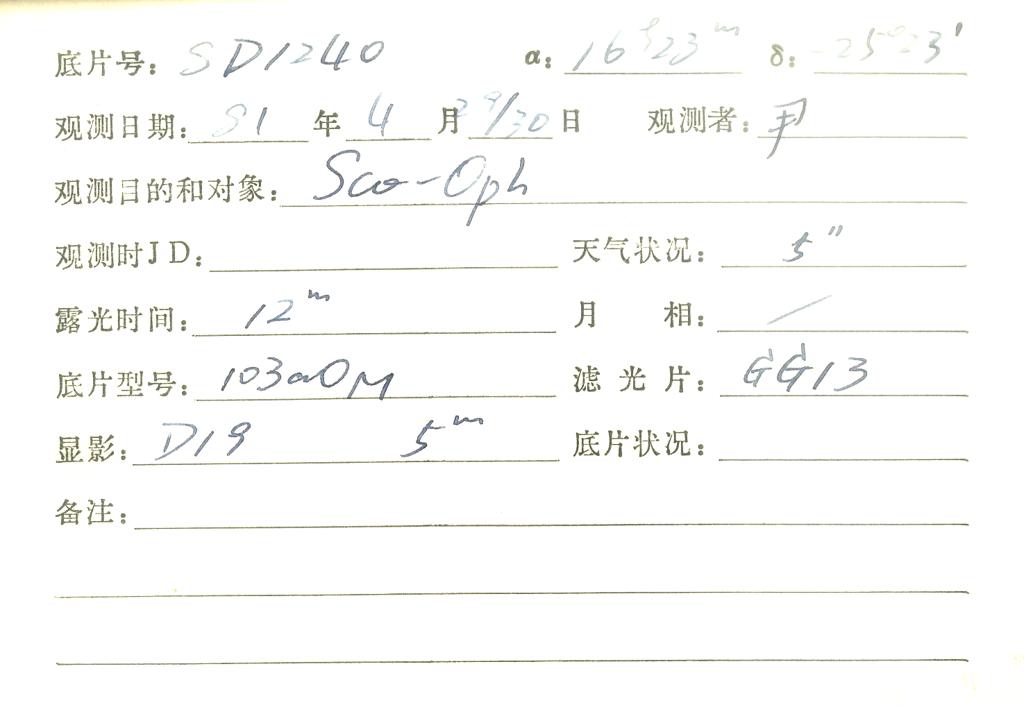 底片号: SD1240 α: 16h23m δ: -25°23'
观测日期: 81 年 4 月 29/30 日 观测者: 尹
观测目的和对象: Sco-Oph
观测时JD: 天气状况: 5"
露光时间: 12m 月 相: /
底片型号: 103aO 滤光片: GG13
显影: D19 5m 底片状况:
备注: